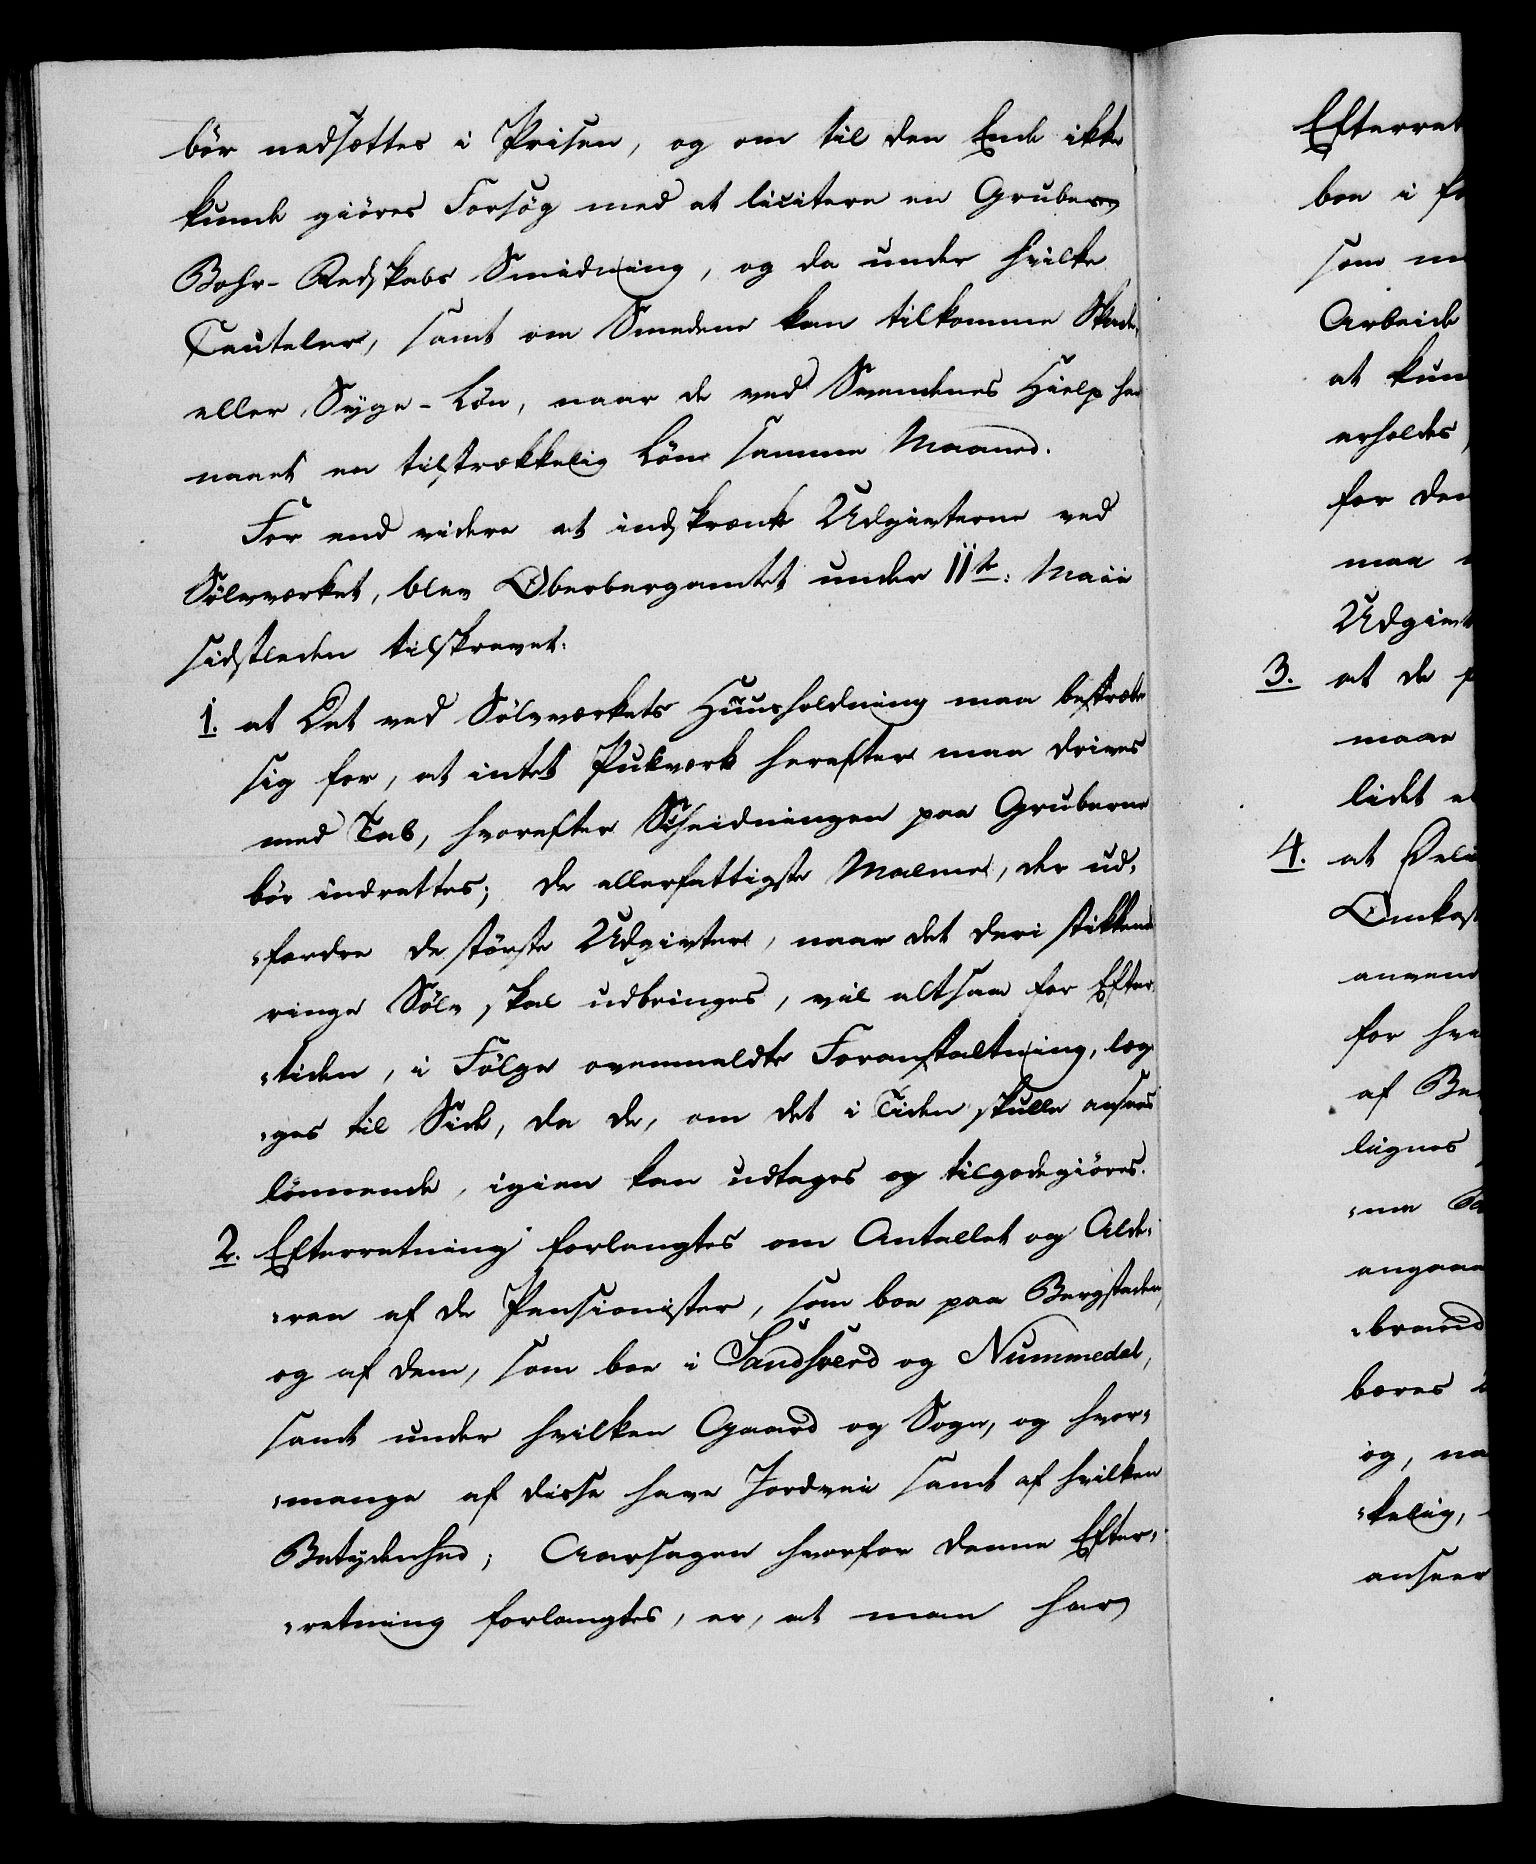 bör nedsættes i Prisen, og om til den Ende ikke
kunde giöres Forsög med at licitere en Grubes
Bohr-Redskabs Smidning, og da under hvilke
Cauteler, samt om Smedene kan tilkomme Skade,
eller Syge-Lön, naar de ved Svendenes Hielp har
naaet en tilstrækkelig Lön samme Maaned.
For end videre at indskrænke Udgivterne ved
Sölvværket, blev Oberbergamtet under 11te: Maii
sidstleden tilskrevet:
1. at Det ved Sölvværkets Huusholdning maa bestræbe
sig for, at intet Pukværk herefter maa drives
med Tab, hvorefter Scheidningen paa Gruberne
bör indrettes; de allerfattigste Malme, der ud,
"fordre de störste Udgivter, naar det deri stikkende
ringe Sölv skal udbringes, vil altsaa for Efter,
"tiden, i Fölge ovenmeldte Foranstaltning, læg
"ges til Side, da de, om det i Tiden skulle ansees
lönnende, igien kan udtages og tilgodegiöres.
2. Efterretning forlangtes om Antallet og Alde,
"ren af de Pensionister, som boe paa Bergstaden,
og af dem, som boe i Sandsverd og Nummedal,
samt under hvilken Gaard og Sogn, og hvor,
"mange af disse have Jordvei samt af hvilken
Betydenhed; Aarsagen hvorfor denne Efter,
"retning forlangtes, er, at man har
Efterret
boe i
som
Arbeide
at kun
erholdes,
for den
maa
Udgivt
3. at de
maae
lidt
4. at
Omkost
anvend
for hve
af
lignes
"ne
angaae
"brænd
bæres
og, na
"kelig,
anseer